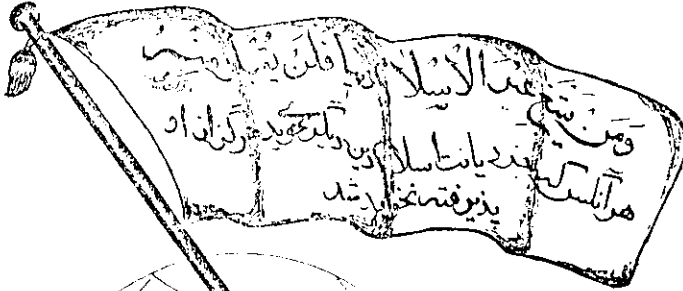 وَمَنْ يَبْتَغِ غَيْرَ الْاِسْلَامِ دِيناً فَلَنْ يُقْبَلَ مِنْهُ
هر آنکس که دیانت اسلام دین دیگری بجوید هرگز از او
پذیرفته نخواهد شد